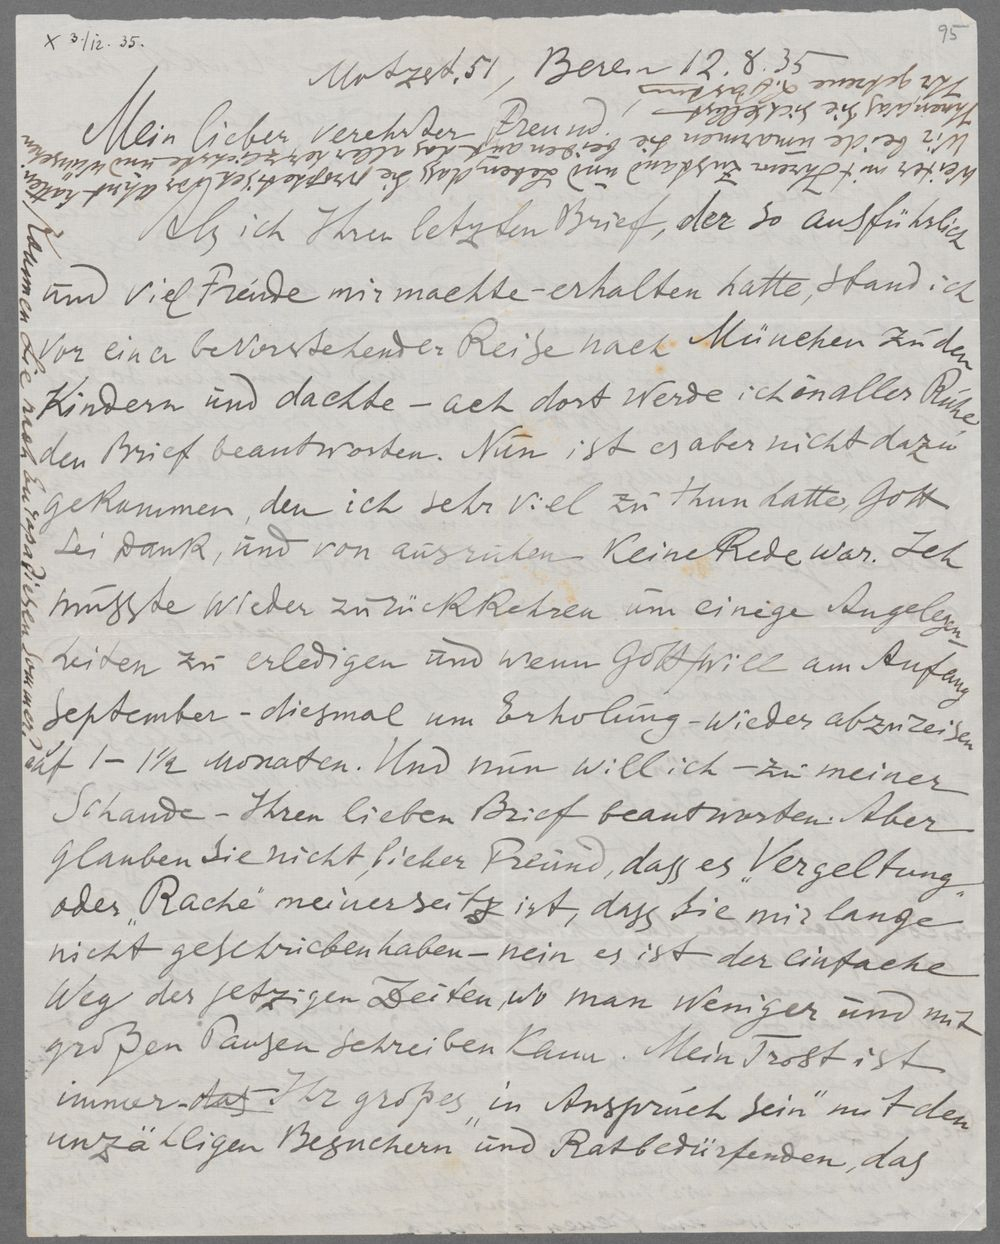 x 3./12. 35.
95
Motzst. 51, Berlin 12.8.35
Mein lieber verehrter Freund
Als ich Ihren letzten Brief, der so ausführlich
und viel Freude mir machte – erhalten hatte, stand ich
vor einer bevorstehender Reise nach München zu den
Kindern und dachte – ach dort werde ich in aller Ruhe
den Brief beantworten. Nun ist es aber nicht dazu
gekommen, den ich sehr viel zu thun hatte, Gott
sei Dank, und von ausruhen keine Rede war. Ich
musste wieder zurückkehren um einige Angelegen-
heiten zu erledigen und wenn Gott will am Anfang
September – diesmal um Erholung – wieder abzureisen
auf 1 – 1 1/2 Monaten. Und nun will ich – zu meiner
Schande – Ihren lieben Brief beantworten. Aber
glauben Sie nicht, lieber Freund, dass es „Vergeltung"
oder „Rache" meinerseits ist, dass Sie mir lange
nicht geschrieben haben – nein es ist der einfache
Weg der jetzigen Zeiten, wo man weniger und mit
großen Pausen schreiben kann. Mein Trost ist
immer – das Ihr großes „in Anspruch sein" mit den
unzähligen „Besuchern" und Ratbedürfenden, das
weiter mit Ihrem Zustand und Leben, dass Sie
Wir beide umarmen Sie beiden auf das aller herzlichste und wünschen
Ihnen, was Sie sich selbst
Ihr getreue
Kommen Sie nach Europa diesen Sommer?